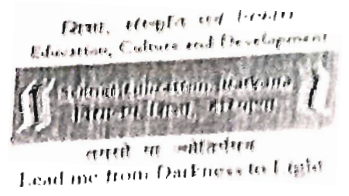 शिक्षा, संस्कृति एवं विकास
Education, Culture and Development
School Education, Haryana
शिक्षा, हरियाणा
तमसो मा ज्योतिर्गमय
Lead me from Darkness to Light